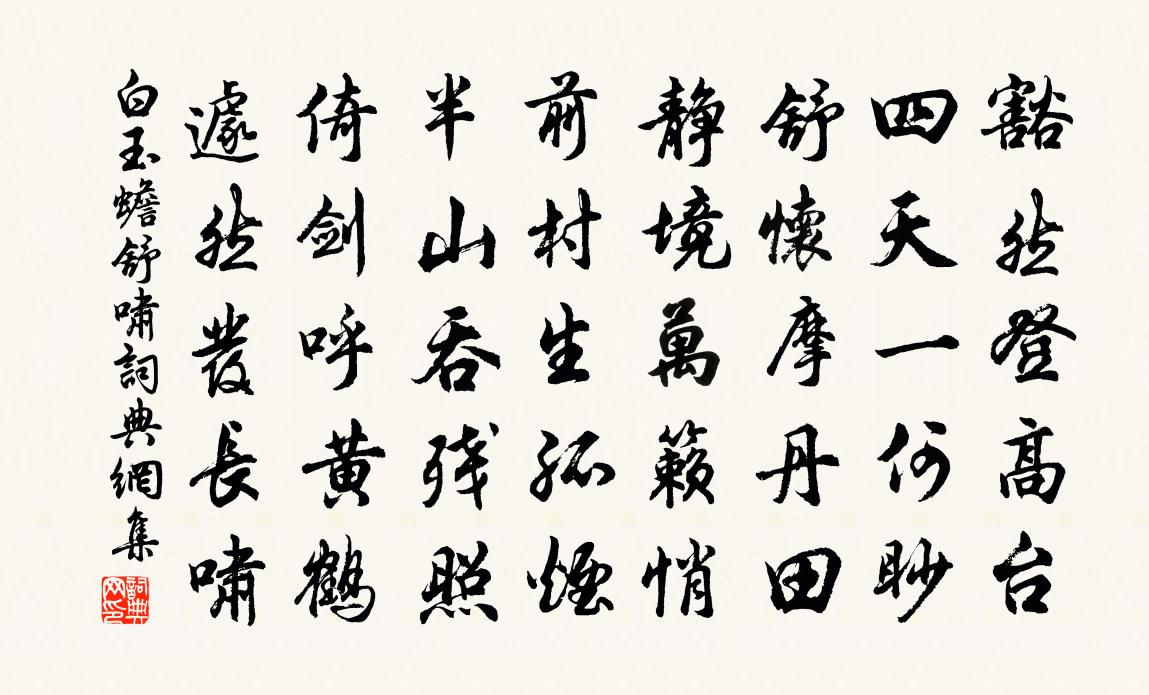 豁然登高台
四天一何眇
舒懷摩丹田
静境萬籟悄
前村生孤煙
半山吞残照
倚劍呼黄鶴
遽然發長嘯
白玉蟾舒嘯詞典網集
詞典
网印